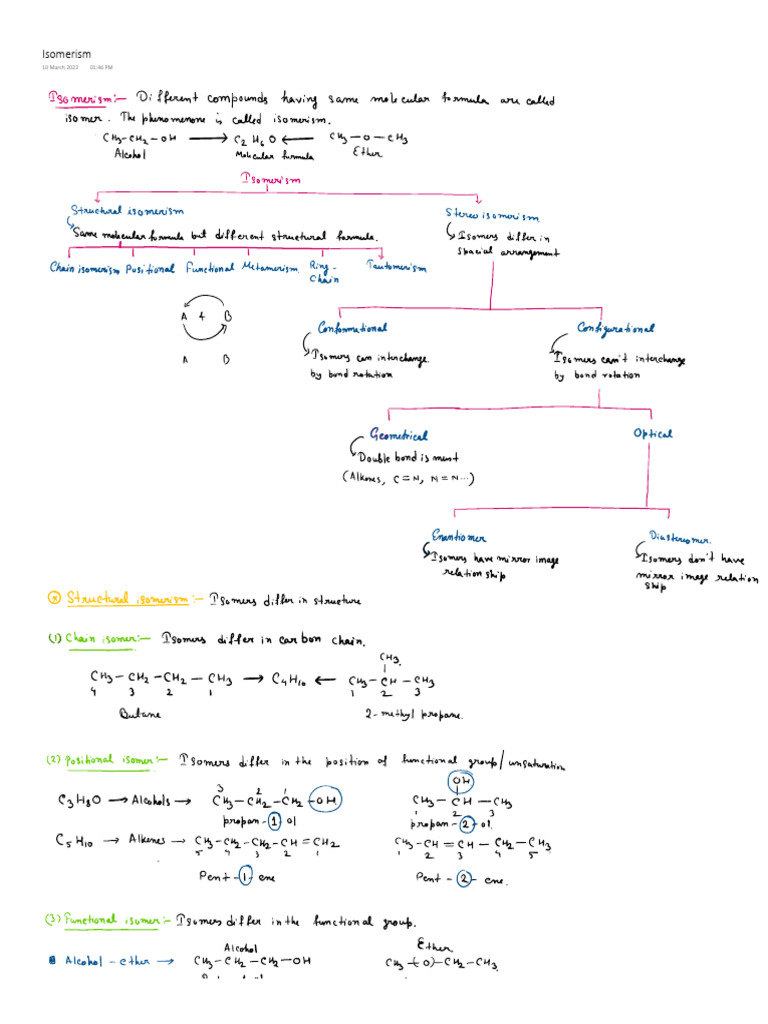 Isomerism
10 March 2023 01:46 PM
Isomerism:- Different compounds having same molecular formula are called
isomer. The phenomenone is called isomerism.
CH₃-CH₂-OH ⟶ C₂H₆O ⟵ CH₃-O-CH₃
Alcohol Molecular formula Ether
Isomerism
Structural isomerism Stereo isomerism
Same molecular formula but different structural formula. Isomers differ in
spacial arrangement
Chain isomerism Positional Functional Metamerism Ring-Chain Tautomerism
A + B
A B
Conformational Configurational
Isomers can interchange
by bond rotation
Isomers can't interchange
by bond rotation
Geometrical Optical
Double bond is must
(Alkenes, C=N, N=N...)
Enantiomer Diastereomer.
Isomers have mirror image
relation ship
Isomers don't have
mirror image relation
ship
Structural isomerism:- Isomers differ in structure
(1) Chain isomer:- Isomers differ in carbon chain.
CH₃
CH₃-CH₂-CH₂-CH₃ → C₄H₁₀ ← CH₃-CH-CH₃
4 3 2 1 1 2 3
Butane 2-methyl propane.
(2) Positional isomer:- Isomers differ in the position of functional group/unsaturation
OH
3 2 1
C₃H₈O → Alcohols → CH₃-CH₂-CH₂-OH CH₃-CH-CH₃
1 2 3
propan-1 ol propan-2-ol.
C₅H₁₀ → Alkenes → CH₃-CH₂-CH₂-CH=CH₂ CH₃-CH=CH-CH₂-CH₃
5 4 3 2 1 1 2 3 4 5
Pent-1-ene Pent-2-ene.
(3) Functional isomer:- Isomers differ in the functional group.
Alcohol Ether
Alcohol-ether → CH₃-CH₂-CH₂-OH CH₃-(O)-CH₂-CH₃.